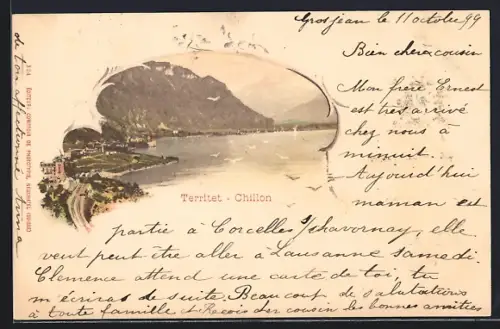 Grosjean le 11 octobre 99
Bien chère cousin
Mon frère Ernest
est très arrivé
chez nous à
minuit.
Aujourd'hui
maman est
partie à Corcelles s/chavornay, elle
veut peut être aller à Lausanne samedi.
Clemence attend une carte de toi, tu
m'écriras de suite. Beaucoup de salutations
à toute famille et Reçois des cousin les bonnes amitiés
de ton affectionné
Territet - Chillon